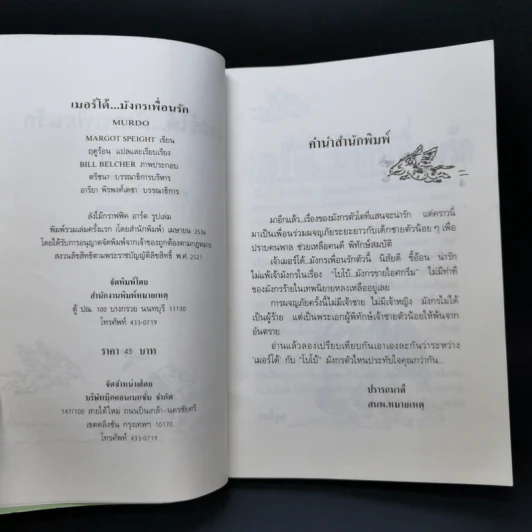 เมอร์โด้...มังกรเพื่อนรัก
MURDO
MARGOT SPEIGHT เขียน
ฤดูร้อน แปลและเรียบเรียง
BILL BELCHER ภาพประกอบ
ตรีชนา บรรณาธิการบริหาร
อารียา พิรพงศ์เดชา บรรณาธิการ
ลังโม้กราฟฟิค อาร์ต รูปเล่ม
พิมพ์รวมเล่มครั้งแรก (โดยสำนักพิมพ์) เมษายน 2536
โดยได้รับการอนุญาตจัดพิมพ์จากเจ้าของถูกต้องตามกฎหมาย
สงวนลิขสิทธิ์ตามพระราชบัญญัติลิขสิทธิ์ พ.ศ. 2521
จัดพิมพ์โดย
สำนักงานพิมพ์หมายเหตุ
ตู้ ปณ. 100 บางกรวย นนทบุรี 11130
โทรศัพท์ 433-0719
ราคา 45 บาท
จัดจำหน่ายโดย
บริษัทบุ๊คคอนเนอชั่น จำกัด
147/100 สายใต้ใหม่ ถนนปิ่นเกล้า-นครชัยศรี
เขตตลิ่งชัน กรุงเทพฯ 10170
โทรศัพท์ 433-0719
คำนำสำนักพิมพ์
มาอีกแล้ว..เรื่องของมังกรตัวโตที่แสนจะน่ารัก แต่คราวนี้
มาเป็นเพื่อนร่วมผจญภัยระยะยาวกับเด็กชายตัวน้อย ๆ เพื่อ
ปราบคนพาล ช่วยเหลือคนดี พิทักษ์สมบัติ
เจ้าเมอร์โด้..มังกรเพื่อนรักตัวนี้ นิสัยดี ขี้อ้อน น่ารัก
ไม่แพ้เจ้ามังกรในเรื่อง "โบโบ้..มังกรขายไอศกรีม" ไม่มีท่าที
ของมังกรร้ายในเทพนิยายหลงเหลืออยู่เลย
การผจญภัยครั้งนี้ไม่มีเจ้าชาย ไม่มีเจ้าหญิง มังกรไม่ได้
เป็นผู้ร้าย แต่เป็นพระเอกผู้พิทักษ์เจ้าชายตัวน้อยให้พ้นจาก
อันตราย
อ่านแล้วลองเปรียบเทียบกันเอาเองละกันว่าระหว่าง
'เมอร์โด้' กับ "โบโบ้" มังกรตัวไหนประทับใจคุณกว่ากัน..
ปรารถนาดี
สนพ.หมายเหตุ